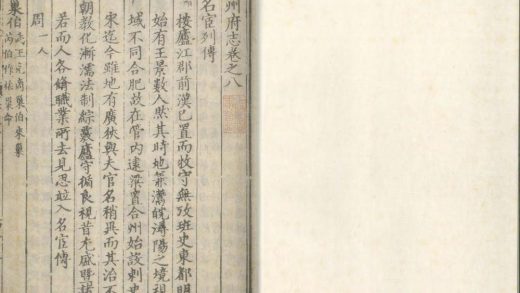 州府志卷之八
名宦列傳
按廬江郡前漢已置而牧守無攷班史東都明
始有王景數人然其時地兼灊皖潯陽之境視
域不同合肥故在管內遠梁置合州始設刺史
東迄今雖地有廣狹與夫官名稍異而其治不
朝教化漸濡法制綜覈廬守循良視昔尤盛聯
若而人各脩職業而去見思並入名宦傳
周一人
巢伯